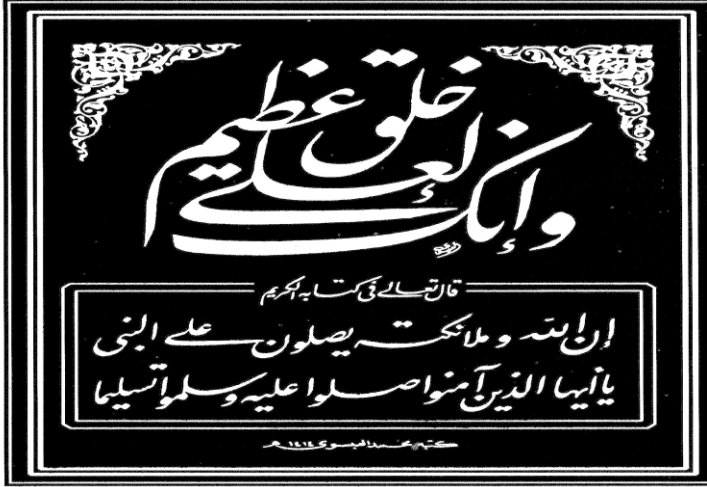 وإنك لعلى خلق عظيم
قال تعالى في كتابه الكريم
إن الله وملائكته يصلون على النبي
يا أيها الذين آمنوا صلوا عليه وسلموا تسليما
كتبه محمد العيسوي ١٤١٤هـ